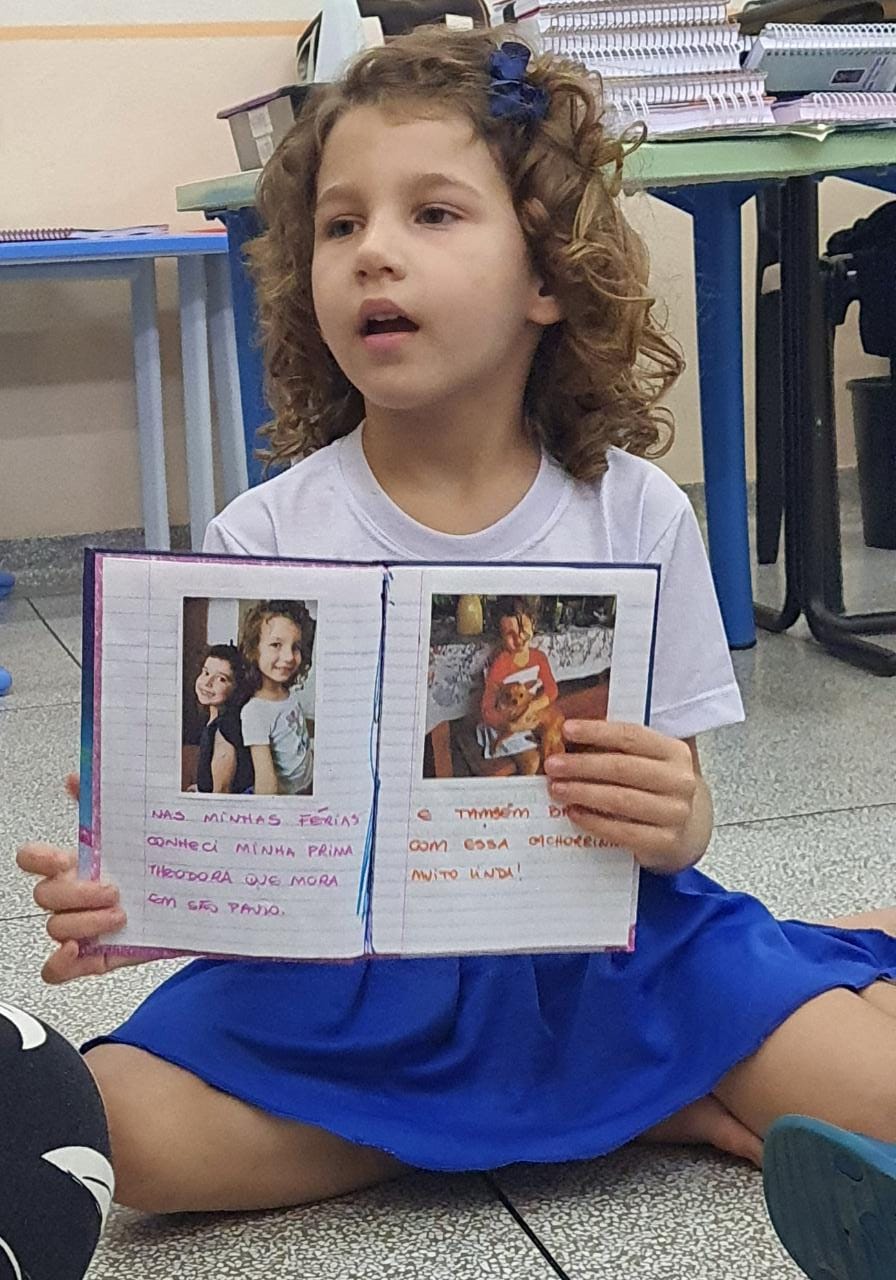 NAS MINHAS FÉRIAS
CONHECI MINHA PRIMA
THEODORA QUE MORA
EM SÃO PAULO.
E TAMBÉM
COM ESSA CACHORRINHA
MUITO LINDA!